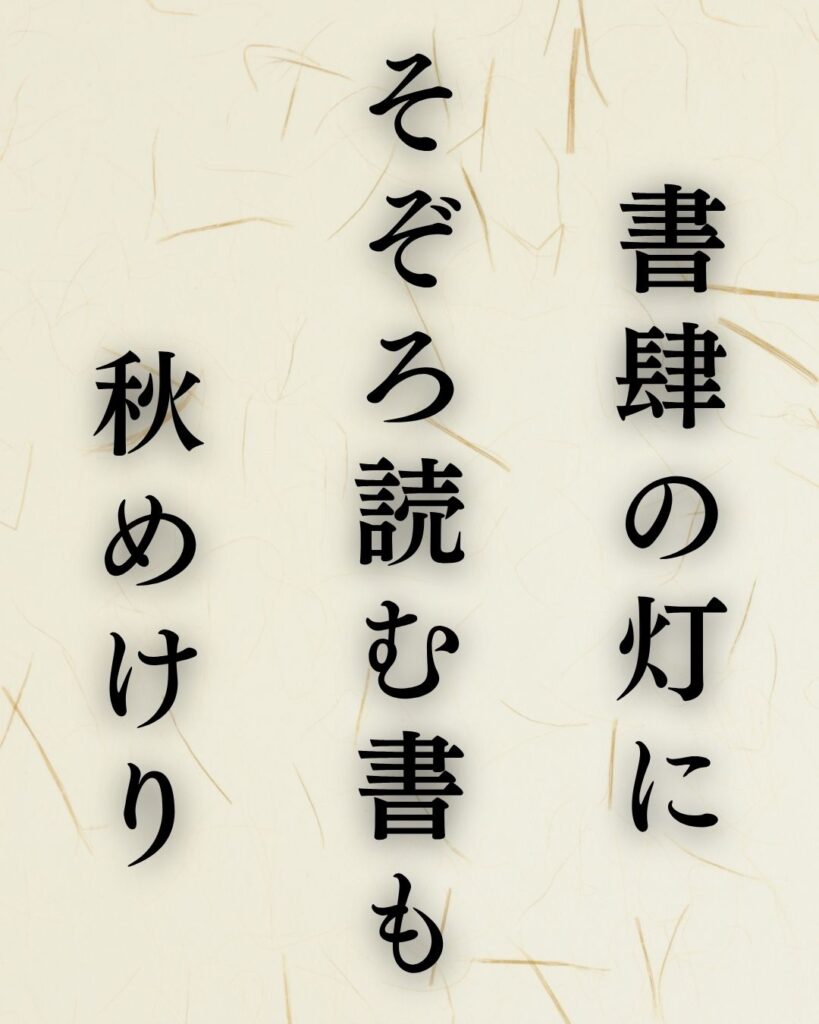 書肆の灯に
そぞろ読む書も
秋めけり